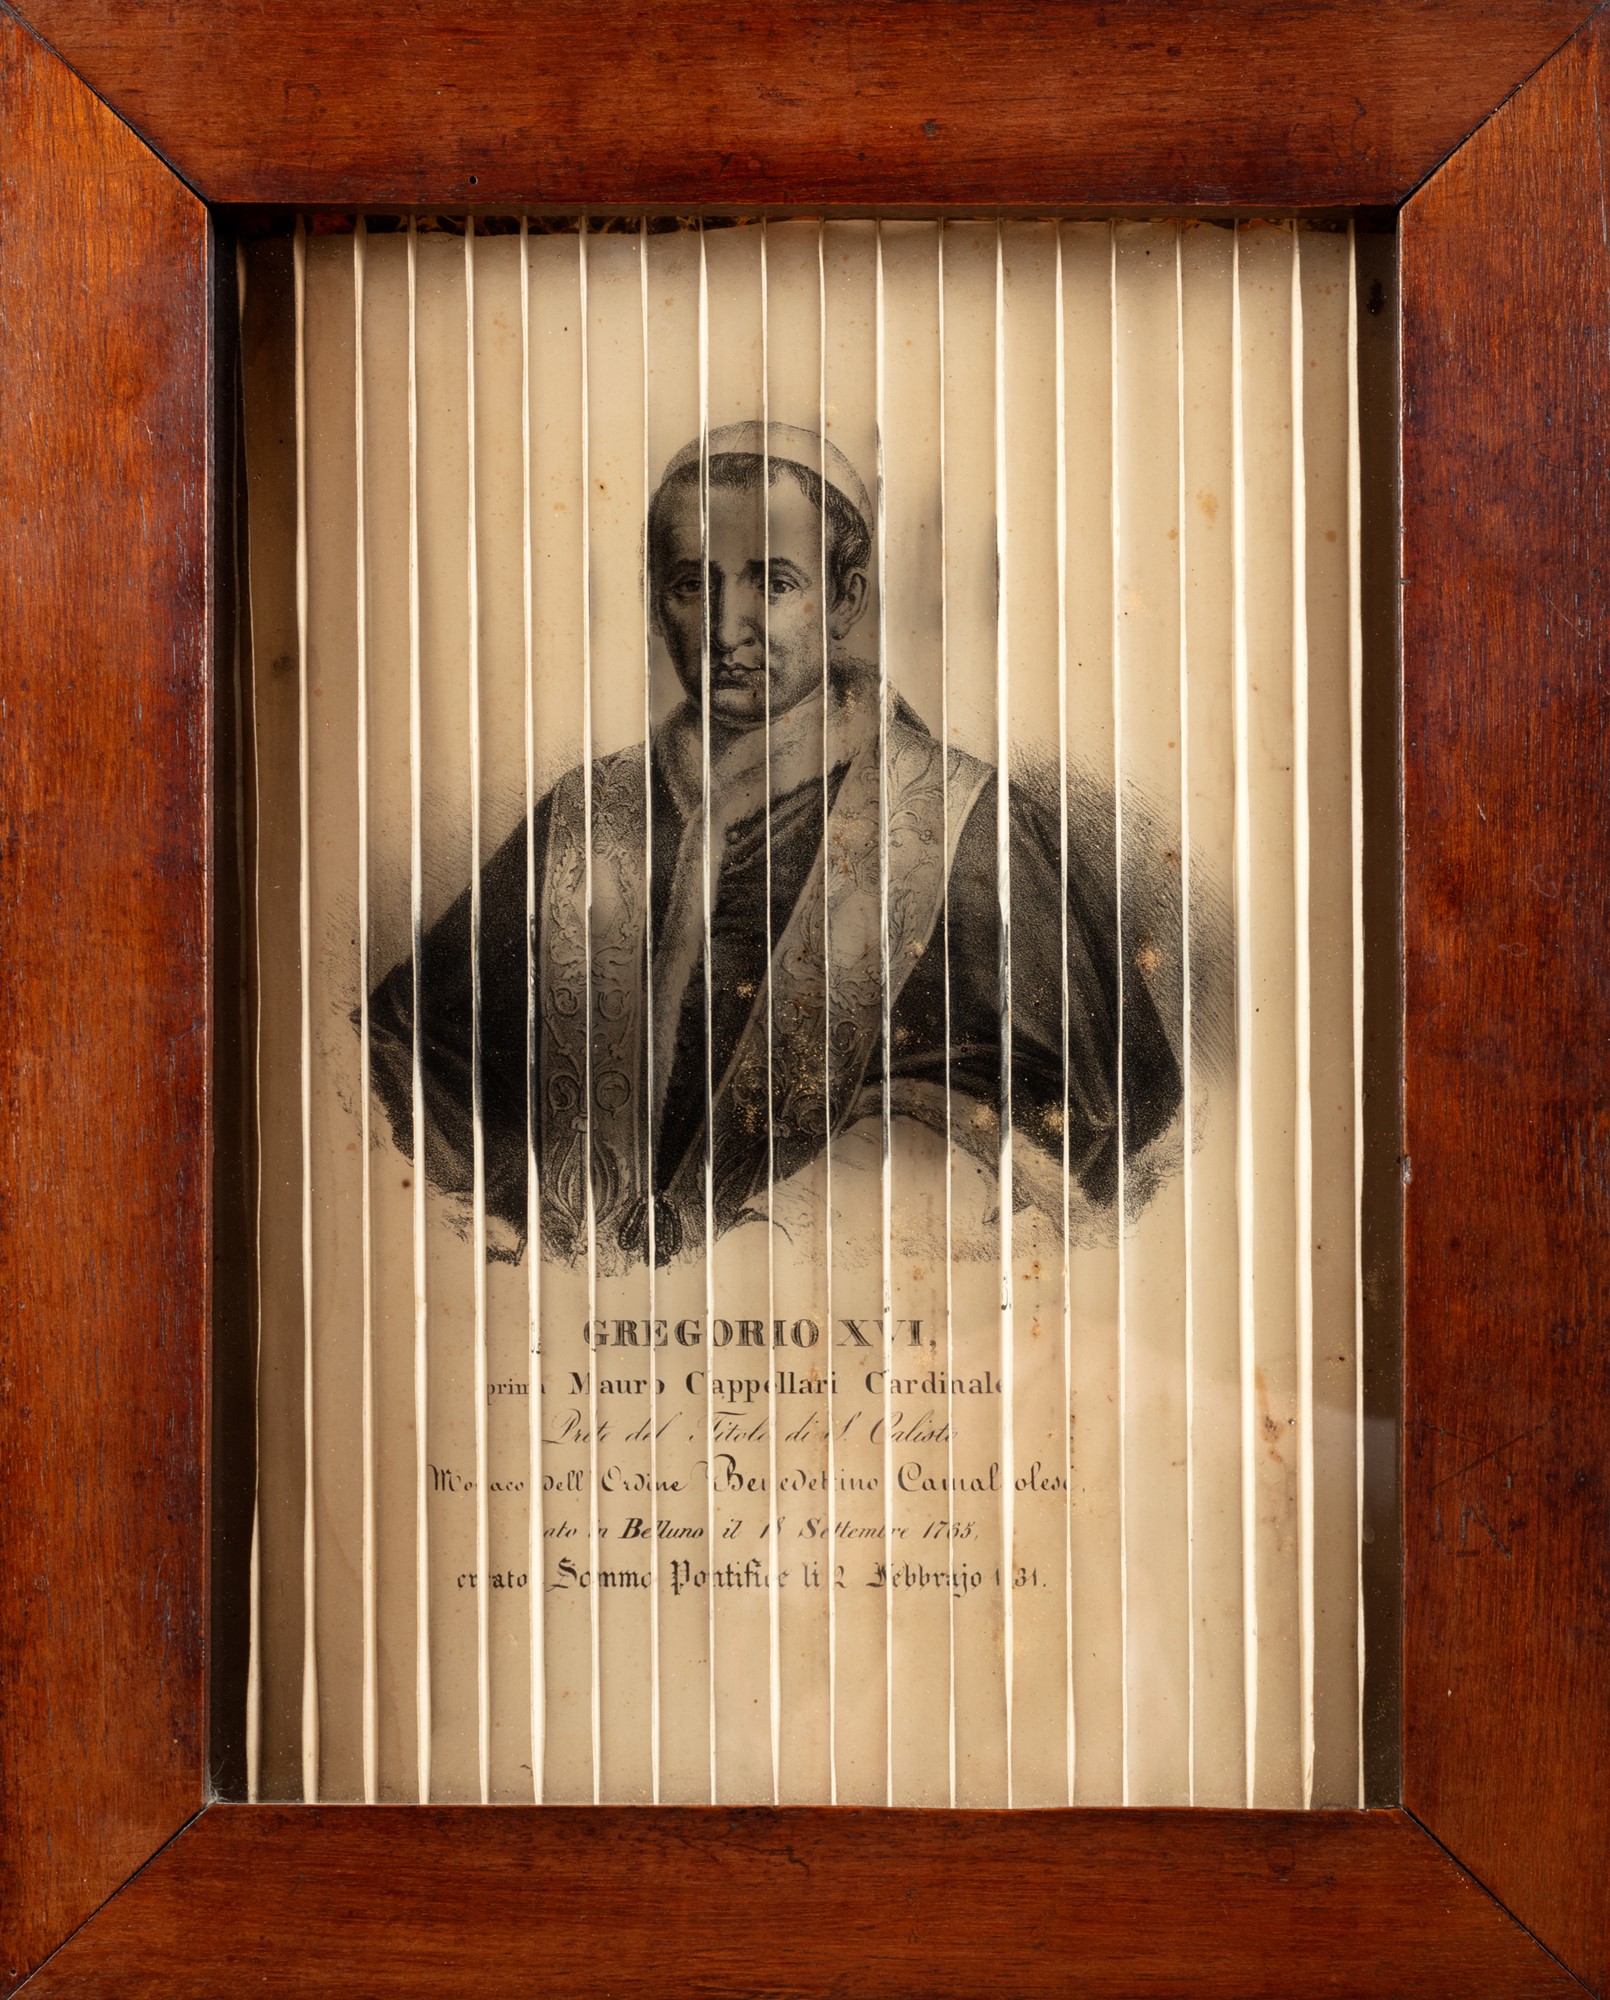 GREGORIO XVI,
prima Mauro Cappellari Cardinale
Prete del Titolo di S. Calisto
Monaco dell'Ordine Benedettino Camaldolese,
nato in Belluno il 18 Settembre 1765,
creato Sommo Pontifice li 2 Febbrajo 1831.